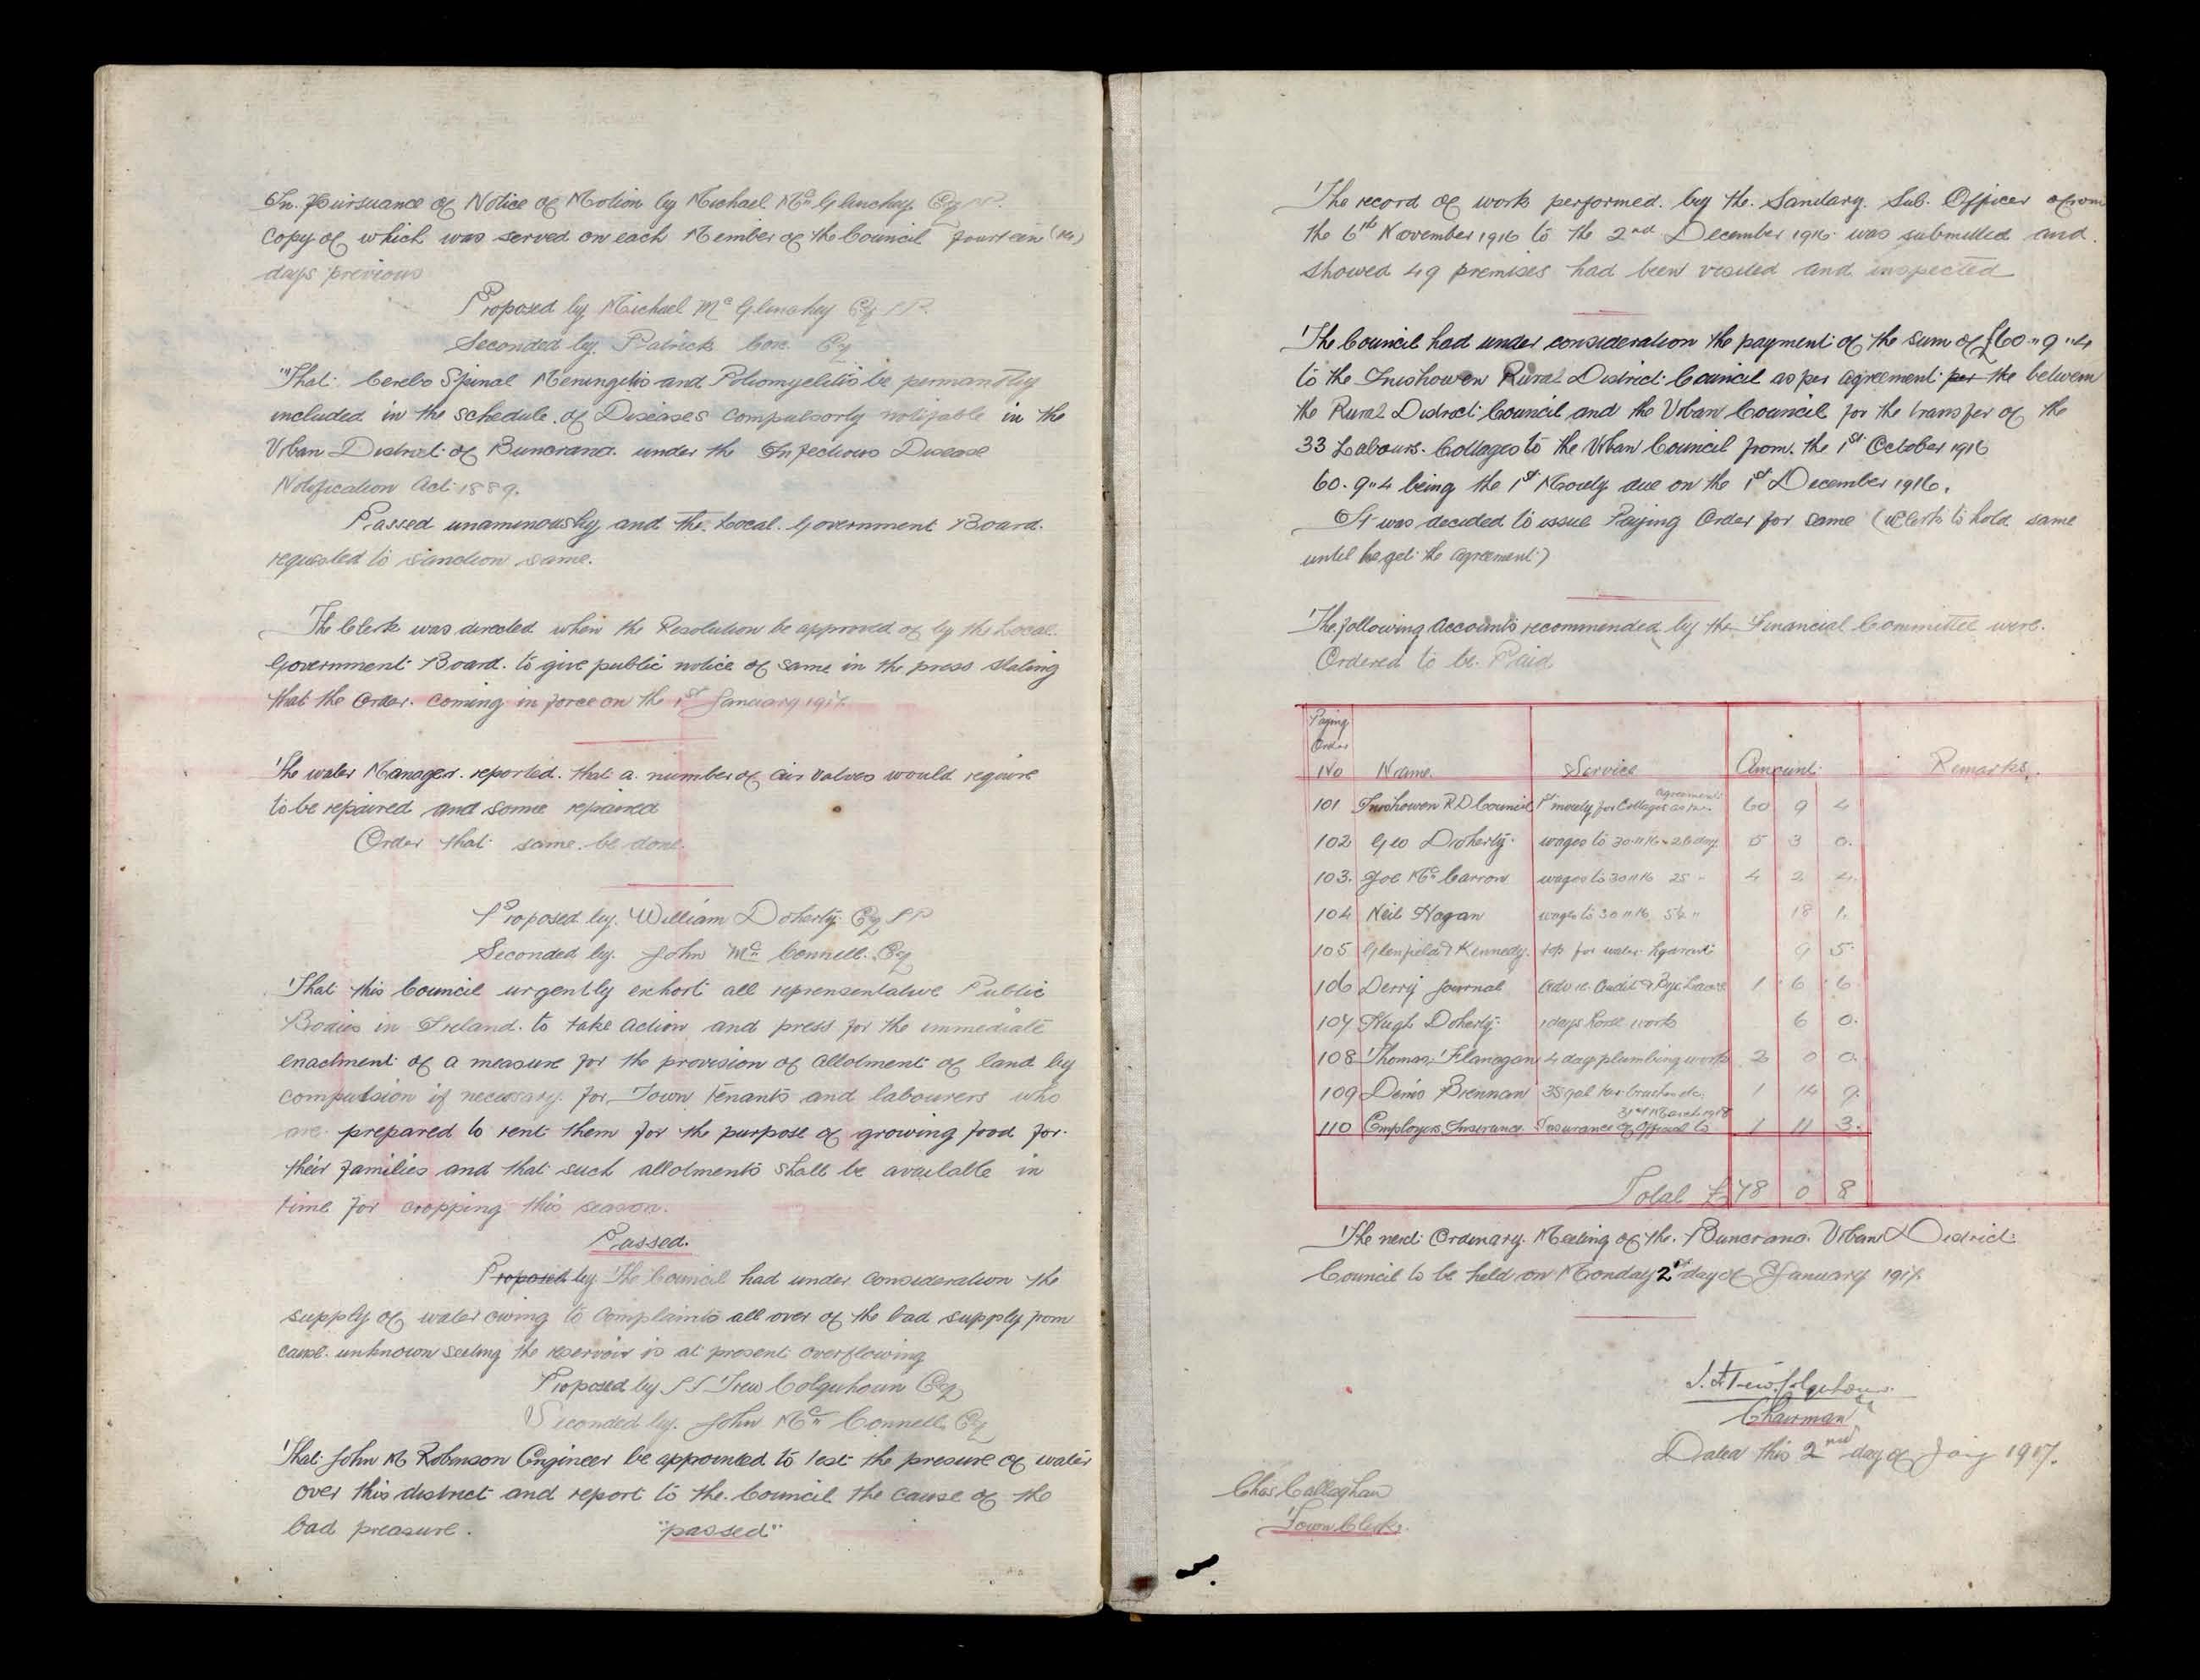 In. Pursuance of Notice of Motion by Michael Mc Glinchey Esq JP.
Copy of which was served on each Member of the Council fourteen (14)
days previous
Proposed by Michael Mc Glinchey Esq JP.
Seconded by. Patrick Cox Esq
"That: Cerebo Spinal Meningitis and Poliomyelitis be permantly
included in the schedule of Diseases compulsorly notifable in the
Urban District of Buncrana. under the Infectious Disease
Notification Act 1889.
Passed unaminously and the Local. Government Board.
requested to sanction same.
The Clerk was directed when the Resolution be approved of by the Local.
Government Board. to give public notice of same in the press stating
that the Order. coming in force on the 1st January 1917.
The water Manager. reported. that a number of air valves would require
to be repaired and some repaired
Order that same. be done.
Proposed by. William Doherty Esq JP
Seconded by. John Mc Connell. Esq
That this Council urgently exhort all reprensentative Public
Bodies in Ireland. to take action and press for the immediate
enactment of a measure for the provision of allotment of land by
compulsion if necessary. for Town tenants and labourers who
are prepared to rent them for the purpose of growing food for
their families and that such allotments shall be available in
time for cropping this season.
Passed.
Proposed by The Council had under consideration the
supply of water owing to complaints all over of the bad supply from
cause. unknown seeing the reservoir is at present overflowing
Proposed by Trew Colquhoun Esq
Seconded by. John Mc Connell Esq
That John M Robinson Engineer be appointed to test the presure of water
over this district and report to the. Council the cause of the
bad preasure. "passed"
The record of work performed. by the. Sanitary. Sub. Officer from
the 6th November 1916 to the 2nd December 1916 was submitted and.
showed 49 premises had been visited and inspected
The Council had under consideration the payment of the sum of £60"9"4
to the Inishowen Rural District Council as per agreement per the between
the Rural District Council and the Urban Council for the transfer of the
33 Labours. Cottages to the Urban Council from. the 1st October 1916
60.9"4 being the 1st Moiety due on the 1st December 1916.
It was decided to issue Paying Order for same (Clerk to hold same
until he get the agreement)
The following Accounts recommended by the Financial Committee were.
Ordered to be. Paid
Paying
Order
No Name. Service Amount Remarks.
101 Inishowen R D Council 1st moiety for Cottages as per agreement 60 9 4
102 Geo Doherty. wages to 30.11.16 26 days 5 3 0.
103. Joe Mc Carron wages to 30 11 16 25 " 4 2 4.
104 Neil Hogan wages to 30 11 16. 5½ " 18 1.
105 Glenfield & Kennedy. for water hydrant 9 5.
106 Derry Journal Adv re. Audit & 1 6 6.
107 Hugh Doherty. days horse work 6 0.
108 Thomas Flanagan 4 days plumbing work 2 0 0.
109 Denis Brennan 35 gal tar brushes etc. 1 14 9.
110 Employers Insurance. Insurance of Official to 31st March 1918 1 11 3.
Total £78 0 8
The next Ordinary. Meeting of the. Buncrana. Urban District
Council to be held on Monday 2nd day of January 1917.
Trew Colquhoun
Chairman
Dated this 2nd day of Jany 1917.
Chas Callaghan
Town Clerk.